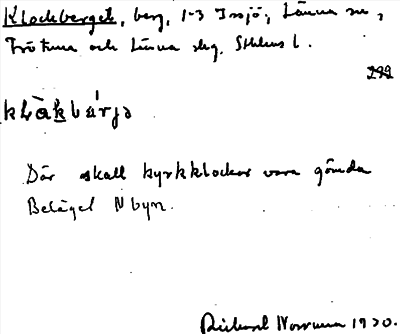 Klockberget, berg, 1-3 Issjö, Länna sn,
Frötuna och Länna skg, Sthlms l.
292
Där skall kyrkklockor vara gömda
Beläget N byn.
Rickard Norman 1930.